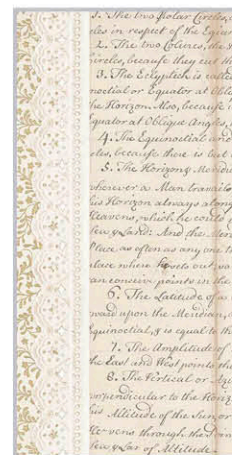 1. The two Polar Circles,
cles in respect of the Equa
2. The two Colures, the
Circles, because they cut th
3. The Ecliptick is calle
noctial or Equator at Obl
the Horizon. Also, because
quator at Oblique Angles,
4. The Equinoctial and
cles, because there is but
5. The Horizon & Meridia
wherever a Man travails
his Horizon always along
Heavens, which he could
Sea & Land: And the Mer
Place as often as any one
place where he sets out
can conceive points in the
6. The Latitude of a
ward upon the Meridian,
quinoctial, & is equal to th
7. The Amplitude of
the East and West points th
8. The Vertical or Az
perpendicular to the Horiz
his Altitude of the Sun, or
through the
Sea & Star of Altitude